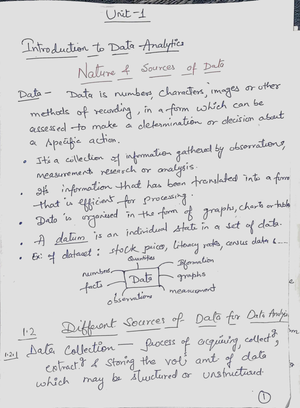 Unit-1
Introduction to Data-Analytics
Nature & Sources of Data
Data - Data is numbers, characters, images or other
methods of recording, in a form which can be
assessed to make a determination or decision about
a specific action.
• It is a collection of information gathered by observations,
measurements research or analysis.
• Its information that has been translated into a form
that is efficient for processing.
• Data is organised in the form of graphs, charts or tables
• A datum is an individual state in a set of data.
• Ex: of dataset: stock prices, literacy rates, census data &
Quantities
numbers
Data
graphs
facts
observations
measurement
1.2 Different Sources of Data for Data Analysis
1.2.1 Data Collection - Process of acquiring, collectg,
extractg & storing the vol; amt of data
which may be structured or unstructured
1